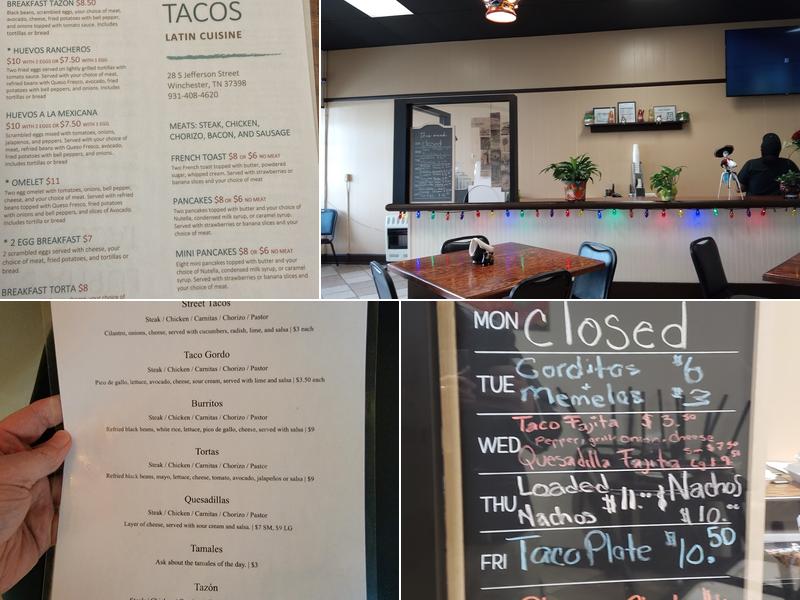 BREAKFAST TAZON $8.50
Black beans, scrambled eggs, your choice of meat,
avocado, cheese, fried potatoes with bell pepper,
and onions topped with tomato sauce. Includes
tortillas or bread
* HUEVOS RANCHEROS
$10 WITH 2 EGGS OR $7.50 WITH 1 EGG
Two fried eggs served on lightly grilled tortillas with
tomato sauce. Served with your choice of meat,
refried beans with Queso Fresco, avocado, fried
potatoes with bell pepper, and onions. Includes
tortillas or bread
HUEVOS A LA MEXICANA
$10 WITH 2 EGGS OR $7.50 WITH 1 EGG
Scrambled eggs mixed with tomatoes, onions,
jalapenos, and peppers. Served with your choice of
meat, refried beans with Queso Fresco, avocado,
fried potatoes with bell pepper, and onions. Includes
tortillas or bread
* OMELET $11
Two egg omelet with tomatoes, onions, bell pepper,
cheese, and your choice of meat. Served with refried
beans topped with Queso Fresco, fried potatoes
with onions and bell pepper, and slices of Avocado.
Includes tortillas or bread
* 2 EGG BREAKFAST $7
2 scrambled eggs served with cheese, your
choice of meat, fried potatoes, and tortillas or
bread.
BREAKFAST TORTA $8
TACOS
LATIN CUISINE
28 S Jefferson Street
Winchester, TN 37398
931-408-4620
MEATS: STEAK, CHICKEN,
CHORIZO, BACON, AND SAUSAGE
FRENCH TOAST $8 OR $6 NO MEAT
Two French toast topped with butter, powdered
sugar, whipped cream. Served with strawberries or
banana slices and your choice of meat
PANCAKES $8 OR $6 NO MEAT
Two pancakes topped with butter and your choice of
Nutella, condensed milk syrup, or caramel syrup.
Served with strawberries or banana slices and your
choice of meat.
MINI PANCAKES $8 OR $6 NO MEAT
Eight mini pancakes topped with butter and your
choice of Nutella, condensed milk syrup, or caramel
syrup. Served with strawberries or banana slices and
your choice of meat
This week
Closed
Street Tacos
Steak / Chicken / Carnitas / Chorizo / Pastor
Cilantro, onions, cheese, served with cucumbers, radish, lime, and salsa | $3 each
Taco Gordo
Steak / Chicken / Carnitas / Chorizo / Pastor
Pico de gallo, lettuce, avocado, cheese, sour cream, served with lime and salsa | $3.50 each
Burritos
Steak / Chicken / Carnitas / Chorizo / Pastor
Refried black beans, white rice, lettuce, pico de gallo, cheese, served with salsa | $9
Tortas
Steak / Chicken / Carnitas / Chorizo / Pastor
Refried black beans, mayo, lettuce, cheese, tomato, avocado, jalapeños or salsa | $9
Quesadillas
Steak / Chicken / Carnitas / Chorizo / Pastor
Layer of cheese, served with sour cream and salsa. | $7 SM, $9 LG
Tamales
Ask about the tamales of the day. | $3
Tazón
MON Closed
TUE Gorditas $6
+ Memelas $3
WED Taco Fajita $3.50
Pepper, grill onion, cheese
Quesadilla Fajita
THU Loaded Nachos $11.00
Nachos $10.00
FRI Taco Plate $10.50